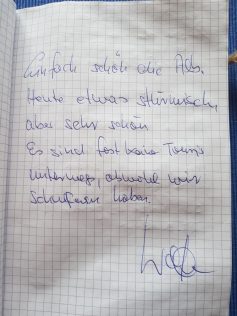 Einfach schön die Alb.
Heute etwas stürmisch
aber sehr schön
Es sind fast keine Touris
unterwegs, obwohl wir
Schulferien haben.